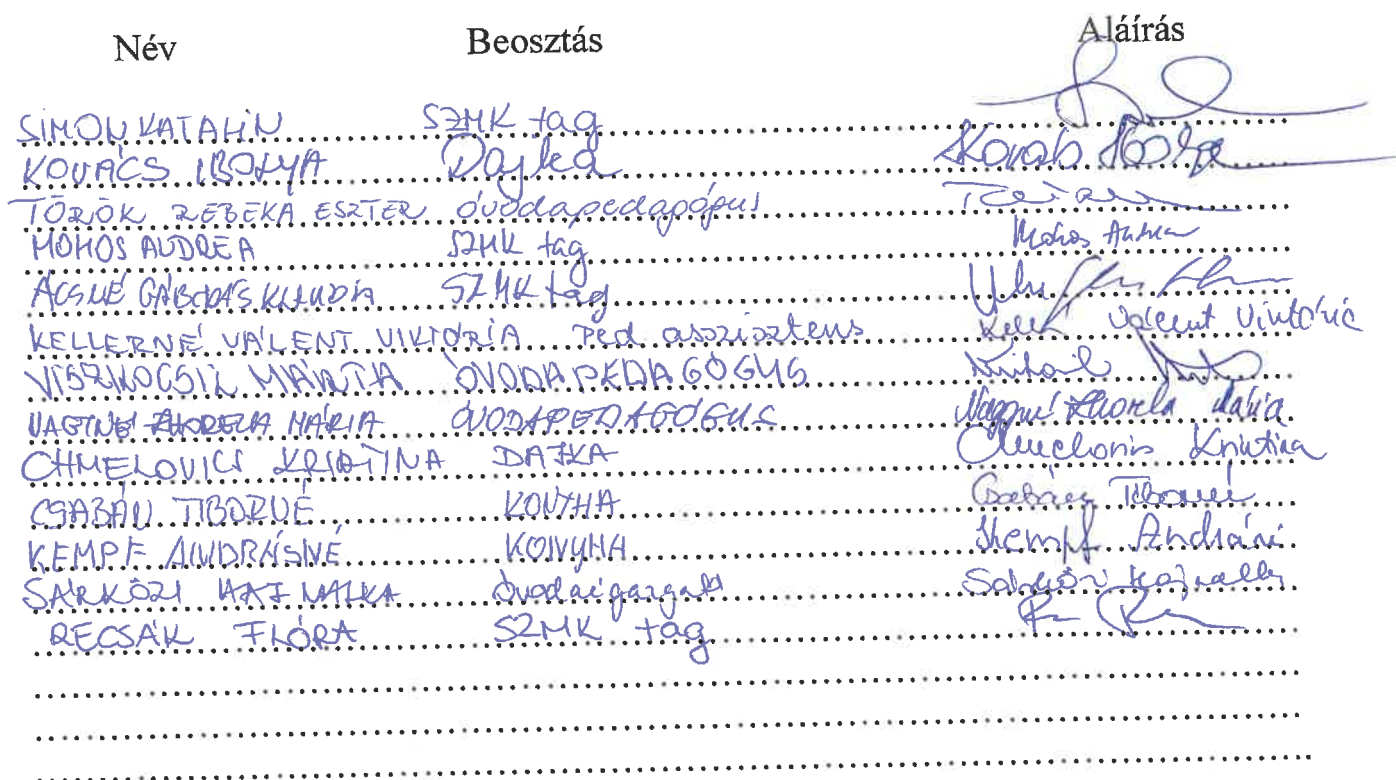 Név Beosztás Aláírás
SIMON KATALIN SZMK tag
KOVÁCS IBOLYA Dajka Kovács Ibolya
TÖRÖK REBEKA ESZTER óvodapedagógus
MOHOS ANDREA SZMK tag Mohos Andrea
ÁCSNÉ GÁBORÁS KLAUDIA SZMK tag
KELLERNÉ VÁLENT VIKTÓRIA Ped asszisztens Valent Viktória
MÁRTA ÓVODAPEDAGÓGUS
MÁRIA ÓVODAPEDAGÓGUS Mária
CHMELOVICS KRISTINA DAJKA Krisztina
CSABÁN TIBORNÉ KONYHA Csabán Tiborné
KEMPF ANDRÁSNÉ KONYHA Kempf Andrásné
SÁRKÖZI HAJNALKA óvodaigazgató Sárközi Hajnalka
RECSÁK FLÓRA SZMK tag